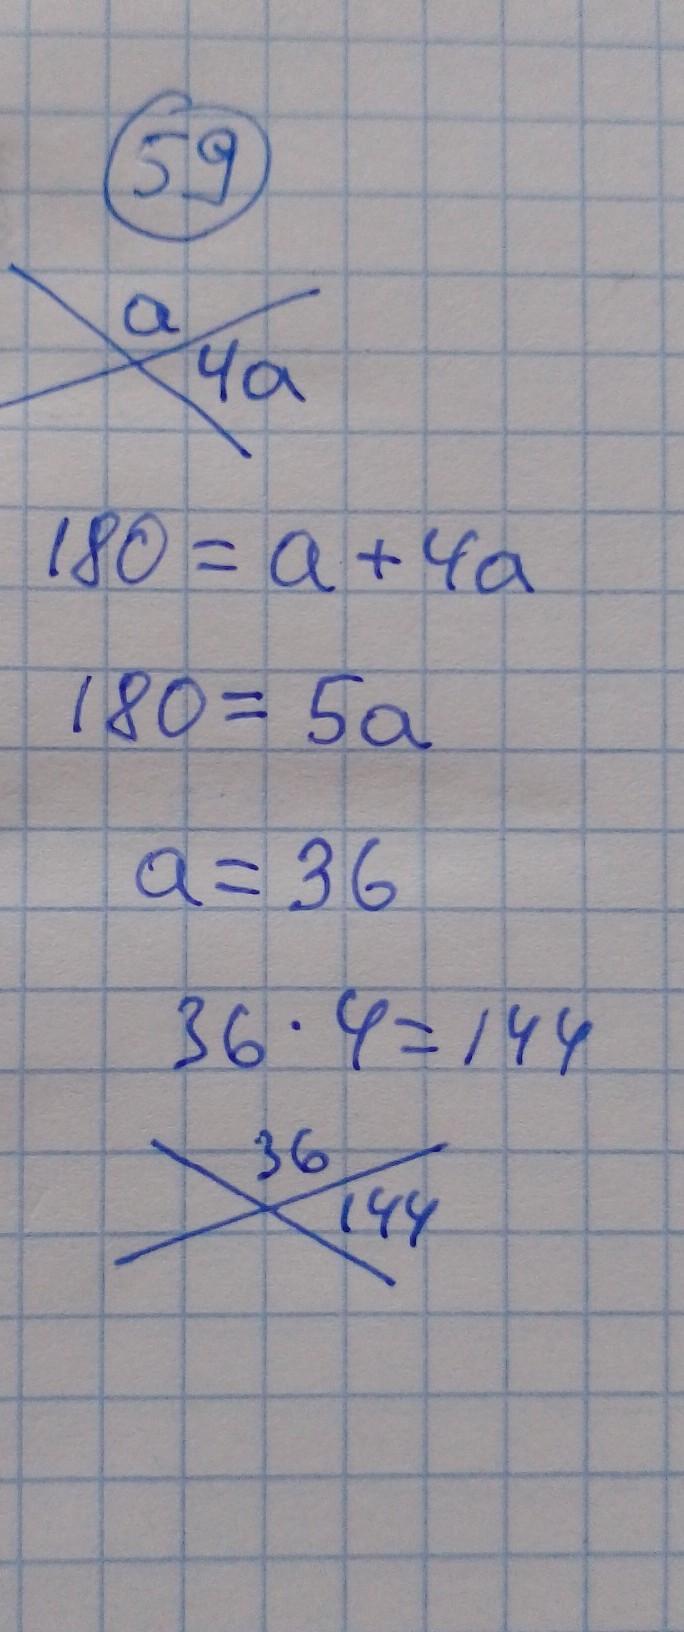 59
a
4a
180 = a + 4a
180 = 5a
a = 36
36 · 4 = 144
36
144